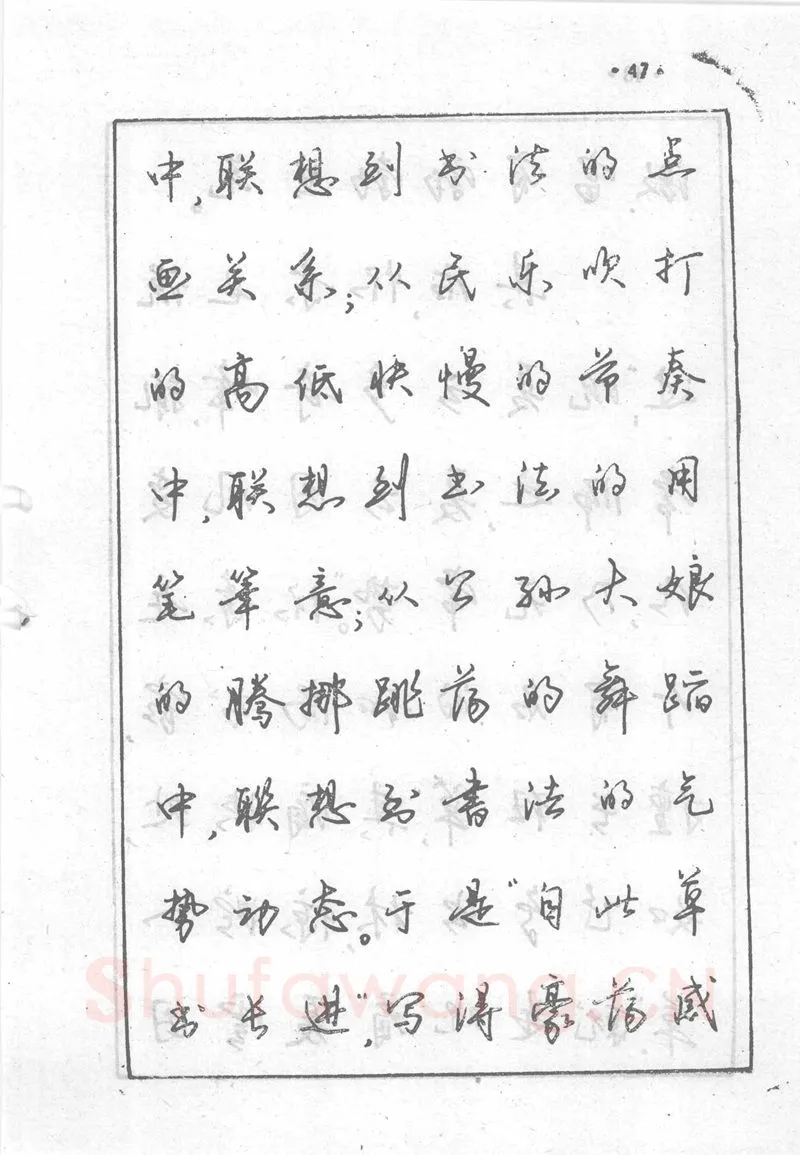 ·47·
中,联想到书法的点
画关系;从民乐吹打
的高低快慢的节奏
中,联想到书法的用
笔笔意;从公孙大娘
的腾挪跳荡的舞蹈
中,联想到書法的气
势动态。于是"自此草
书长进",写得豪荡感
Shufawang.CN